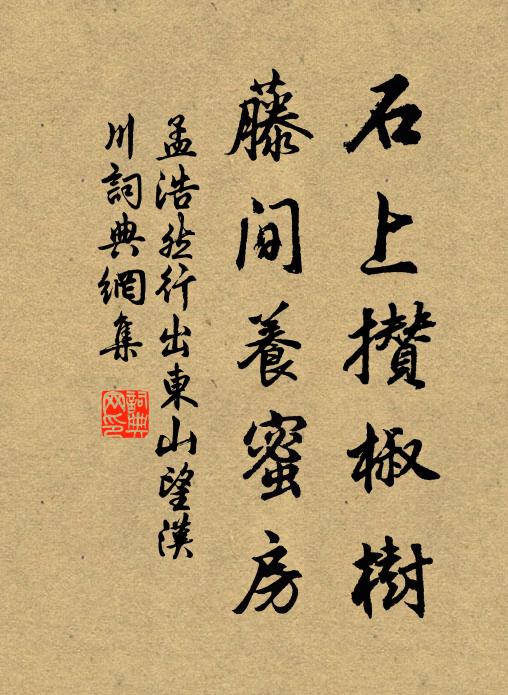 石上攢椒樹
藤間養蜜房
孟浩然行出東山望漢
川詞典網集
詞典
网印